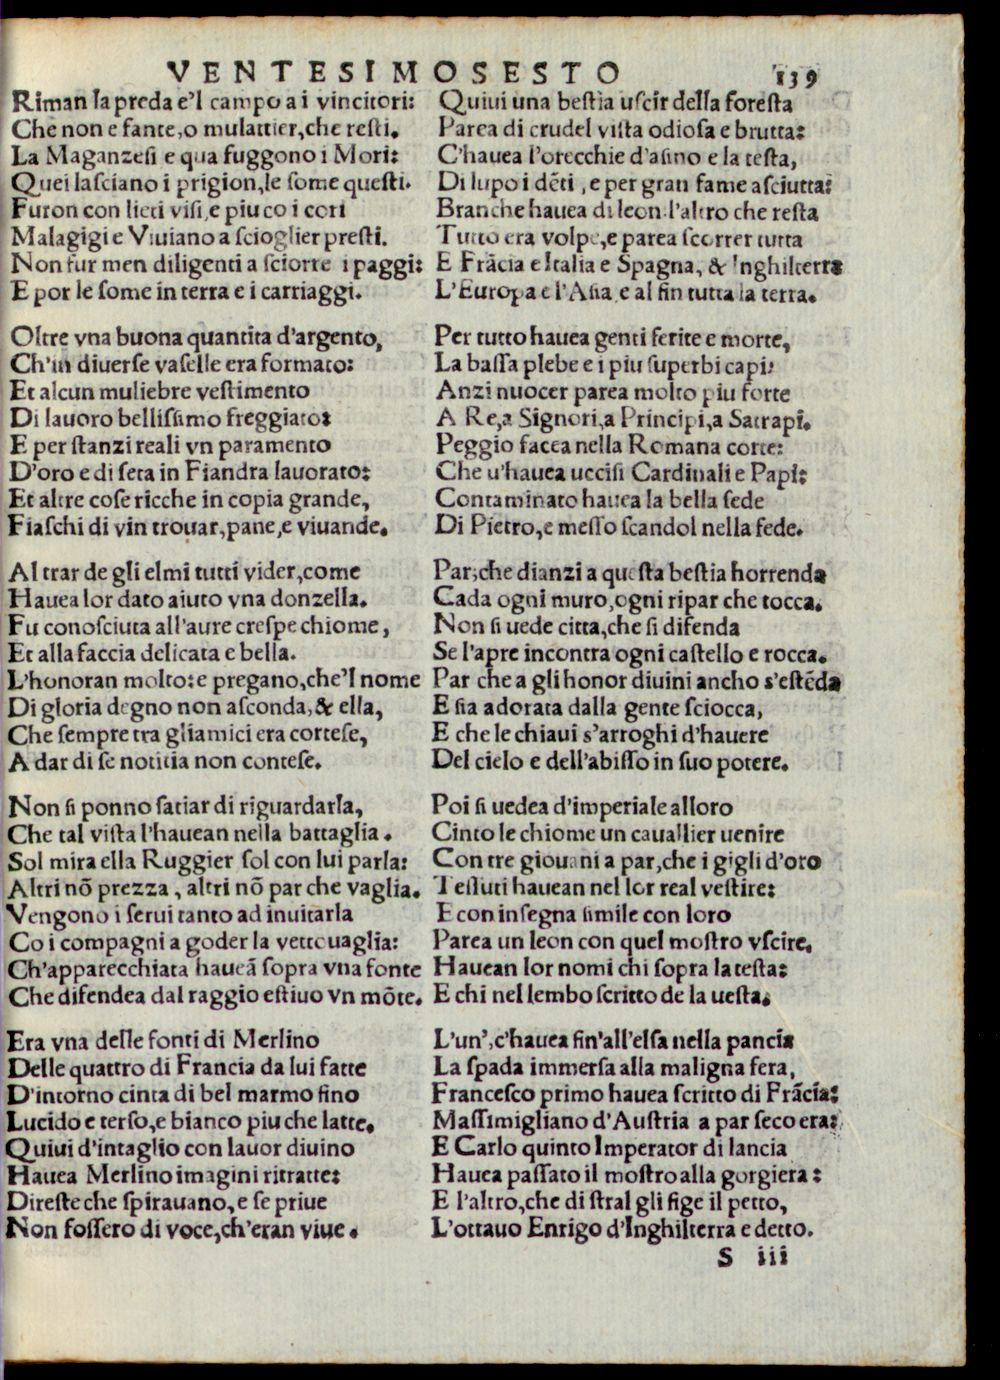 VENTESIMOSESTO 139
Riman la preda e'l campo a i vincitori:
Che non e fante, o mulattier, che resti.
La Maganzesi e qua fuggono i Mori:
Quei lasciano i prigion, le some questi.
Furon con lieti visi, e piu co i cori
Malagigi e Viuiano a scioglier presti.
Non fur men diligenti a sciorre i paggi:
E por le some in terra e i carriaggi.

Oltre vna buona quantita d'argento,
Ch'in diuerse vaselle era formato:
Et alcun muliebre vestimento
Di lauoro bellissimo freggiato:
E per stanzi reali vn paramento
D'oro e di seta in Fiandra lauorato:
Et altre cose ricche in copia grande,
Fiaschi di vin trouar, pane, e viuande.

Al trar de gli elmi tutti vider, come
Hauea lor dato aiuto vna donzella.
Fu conosciuta all'aure crespe chiome,
Et alla faccia delicata e bella.
L'honoran molto: e pregano, che'l nome
Di gloria degno non asconda, & ella,
Che sempre tra gliamici era cortese,
A dar di se notitia non contese.

Non si ponno satiar di riguardarla,
Che tal vista l'hauean nella battaglia.
Sol mira ella Ruggier sol con lui parla:
Altri nõ prezza, altri nõ par che vaglia.
Vengono i serui tanto ad inuitarla
Co i compagni a goder la vettouaglia:
Ch'apparecchiata haueã sopra vna fonte
Che difendea dal raggio estiuo vn mõte.

Era vna delle fonti di Merlino
Delle quattro di Francia da lui fatte
D'intorno cinta di bel marmo fino
Lucido e terso, e bianco piu che latte.
Quiui d'intaglio con lauor diuino
Hauea Merlino imagini ritratte:
Direste che spirauano, e se priue
Non fossero di voce, ch'eran viue.

Quiui una bestia uscir della foresta
Parea di crudel vista odiosa e brutta:
C'hauea l'orecchie d'asino e la testa,
Di lupo i dẽti, e per gran fame asciutta:
Branche hauea di leon. l'altro che resta
Tutto era volpe, e parea scorrer tutta
E Frãcia e Italia e Spagna, & Inghilterra
L'Europa e l'Asia, e al fin tutta la terra.

Per tutto hauea genti ferite e morte,
La bassa plebe e i piu superbi capi:
Anzi nuocer parea molto piu forte
A Re, a Signori, a Principi, a Satrapi.
Peggio facea nella Romana corte:
Che u'hauea uccisi Cardinali e Papi:
Contaminato hauea la bella sede
Di Pietro, e messo scandol nella fede.

Par, che dianzi a questa bestia horrenda
Cada ogni muro, ogni ripar che tocca.
Non si uede citta, che si difenda
Se l'apre incontra ogni castello e rocca.
Par che a gli honor diuini ancho s'estẽda
E sia adorata dalla gente sciocca,
E che le chiaui s'arroghi d'hauere
Del cielo e dell'abisso in suo potere.

Poi si uedea d'imperiale alloro
Cinto le chiome un cauallier uenire
Con tre giouani a par, che i gigli d'oro
Tessuti hauean nel lor real vestire:
E con insegna simile con loro
Parea un leon con quel mostro vscire,
Hauean lor nomi chi sopra la testa:
E chi nel lembo scritto de la uesta.

L'un', c'hauea fin'all'elsa nella pancia
La spada immersa alla maligna fera,
Francesco primo hauea scritto di Frãcia:
Massimigliano d'Austria a par seco era:
E Carlo quinto Imperator di lancia
Hauea passato il mostro alla gorgiera:
E l'altro, che di stral gli fige il petto,
L'ottauo Enrigo d'Inghilterra e detto.
S iii